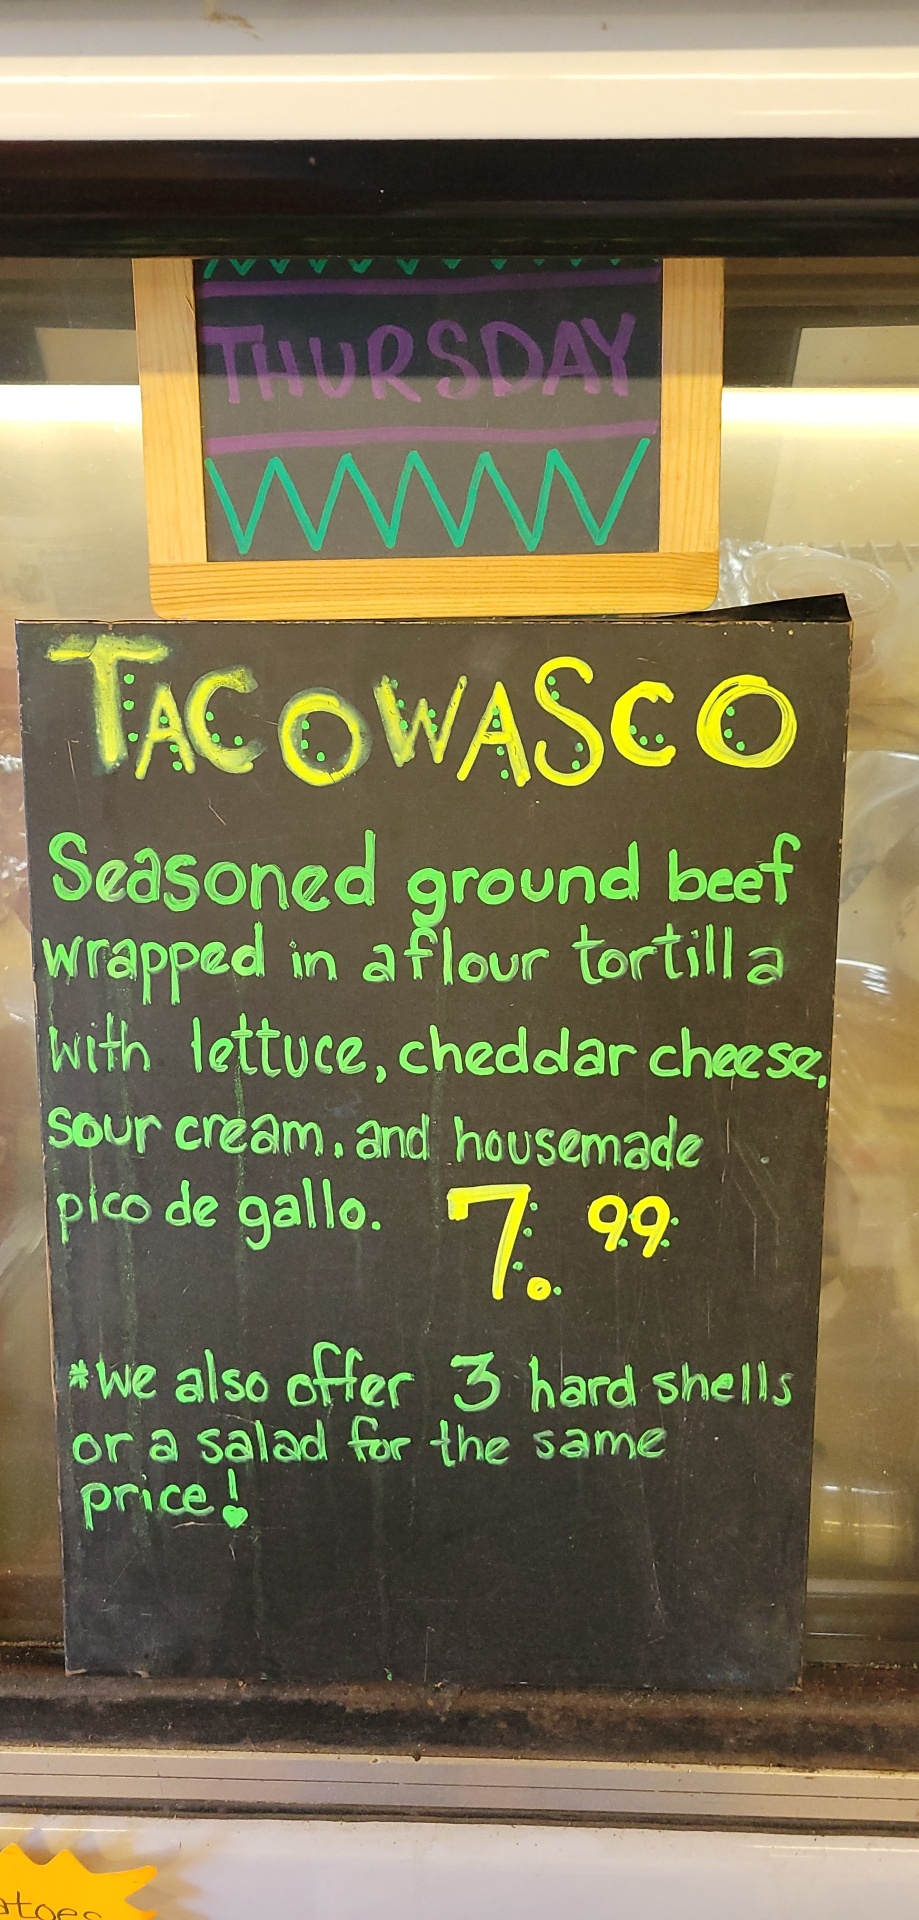 THURSDAY
TACOWASCO
Seasoned ground beef
wrapped in a flour tortilla
with lettuce, cheddar cheese,
sour cream, and housemade
pico de gallo. 7.99
*we also offer 3 hard shells
or a salad for the same
price!